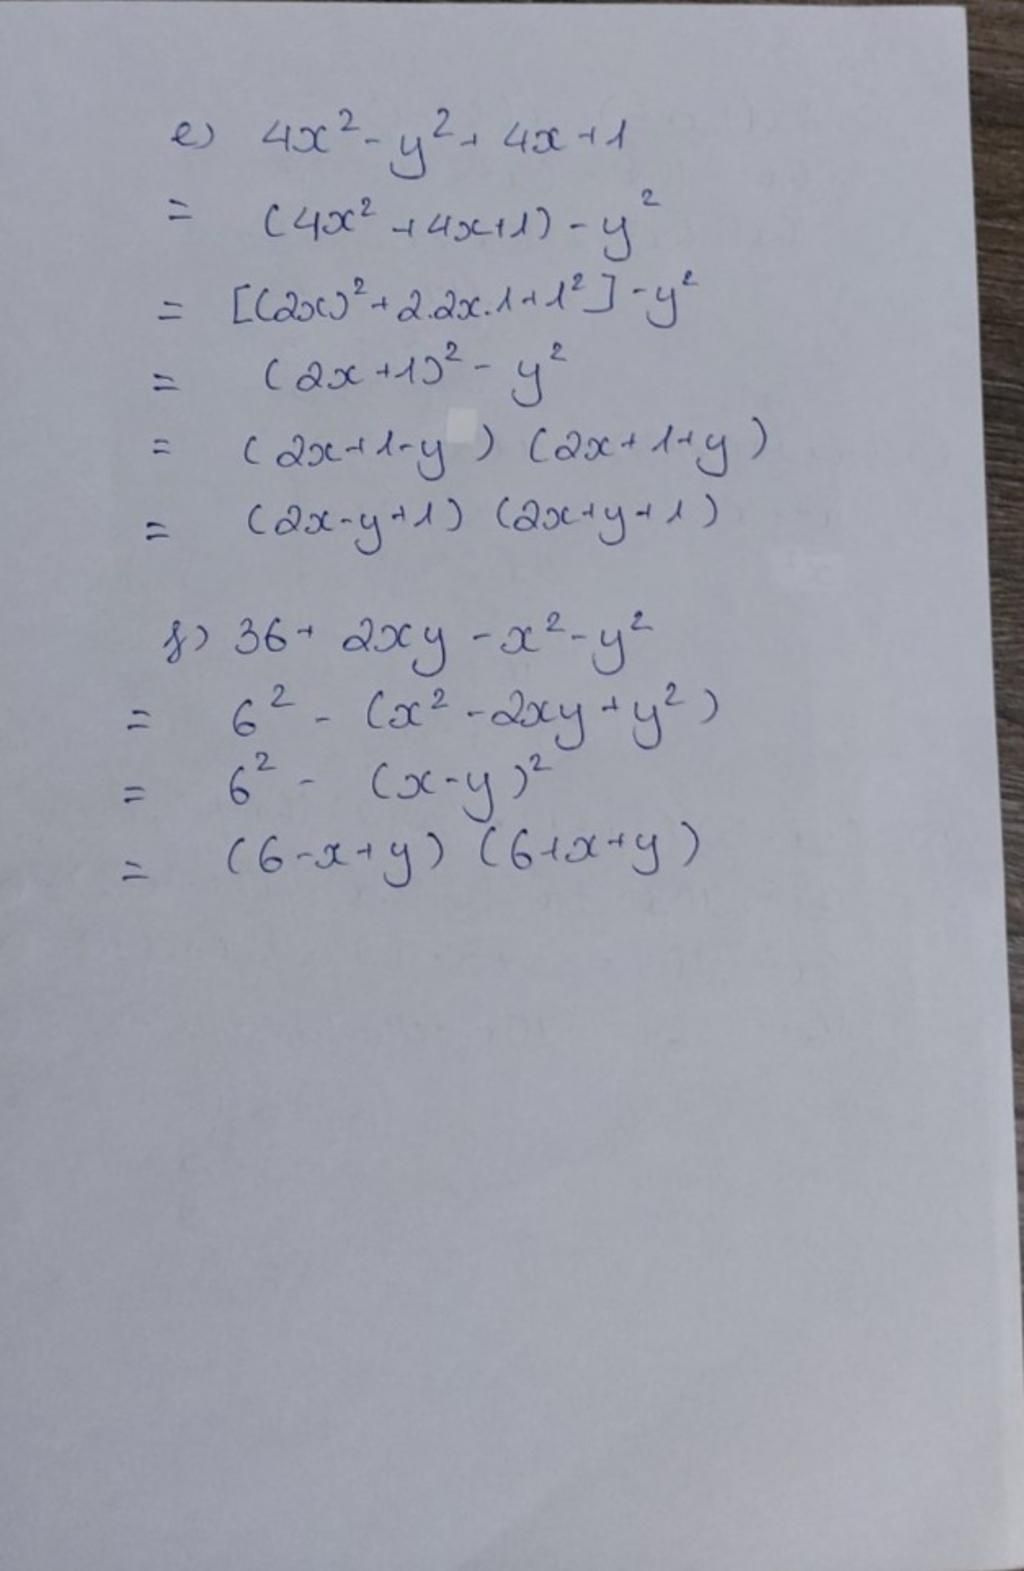 e) 4x² - y² + 4x + 1
= (4x² + 4x + 1) - y²
= [(2x)² + 2.2x.1 + 1²] - y²
= (2x + 1)² - y²
= (2x + 1 - y) (2x + 1 + y)
= (2x - y + 1) (2x + y + 1)
f) 36 + 2xy - x² - y²
= 6² - (x² - 2xy + y²)
= 6² - (x - y)²
= (6 - x + y) (6 + x + y)